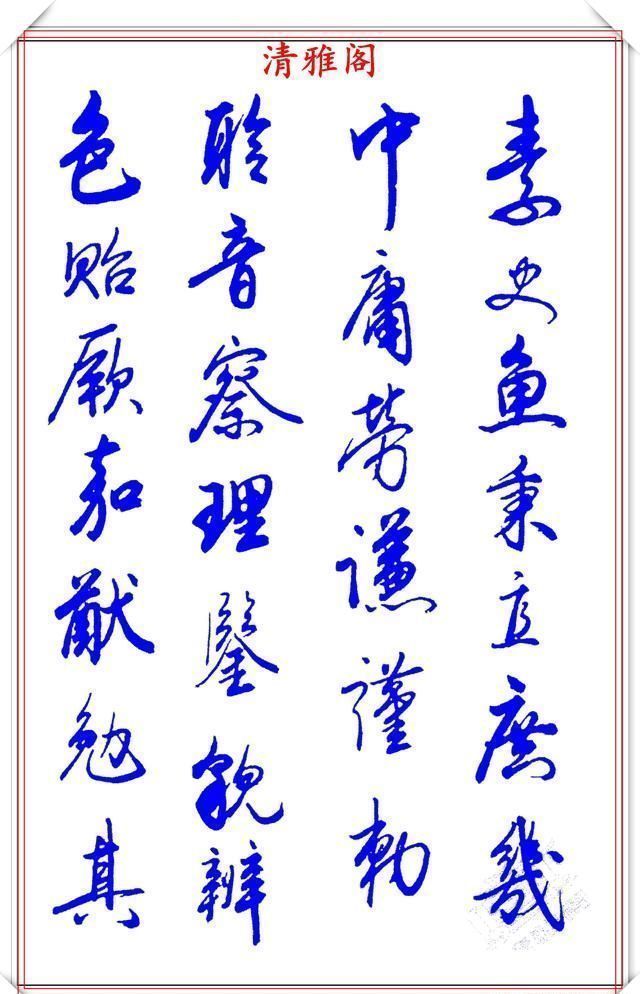 清雅阁
素史鱼秉直庶幾
中庸劳謙謹勅
聆音察理鑒貌辨
色贻厥嘉猷勉其